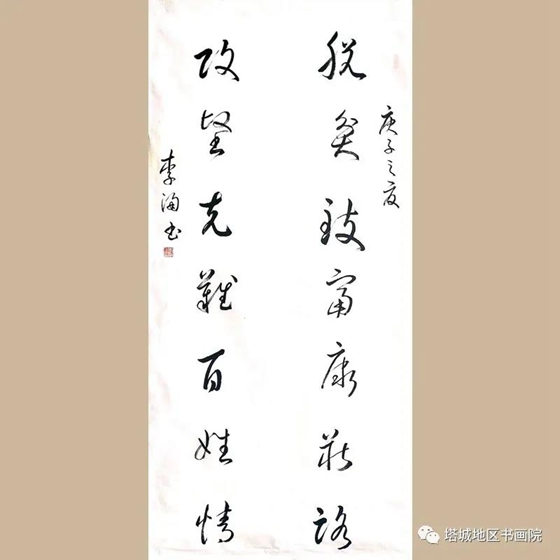 脱貧致富康莊路
庚子之夏
攻堅克難百姓情
李 书
塔城地区书画院